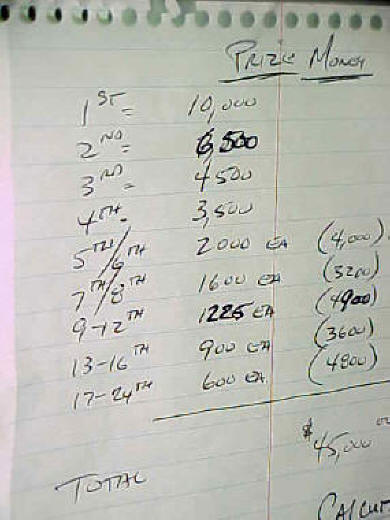 PRIZE MONEY
1ST = 10,000
2ND = 6,500
3RD = 4500
4TH - 3,500
5TH/6TH 2000 EA (4,000)
7TH/8TH 1600 EA (3200)
9-12TH 1225 EA (4900)
13-16TH 900 EA (3600)
17-24TH 600 EA (4800)
$45,000 00
TOTAL
CALCUT